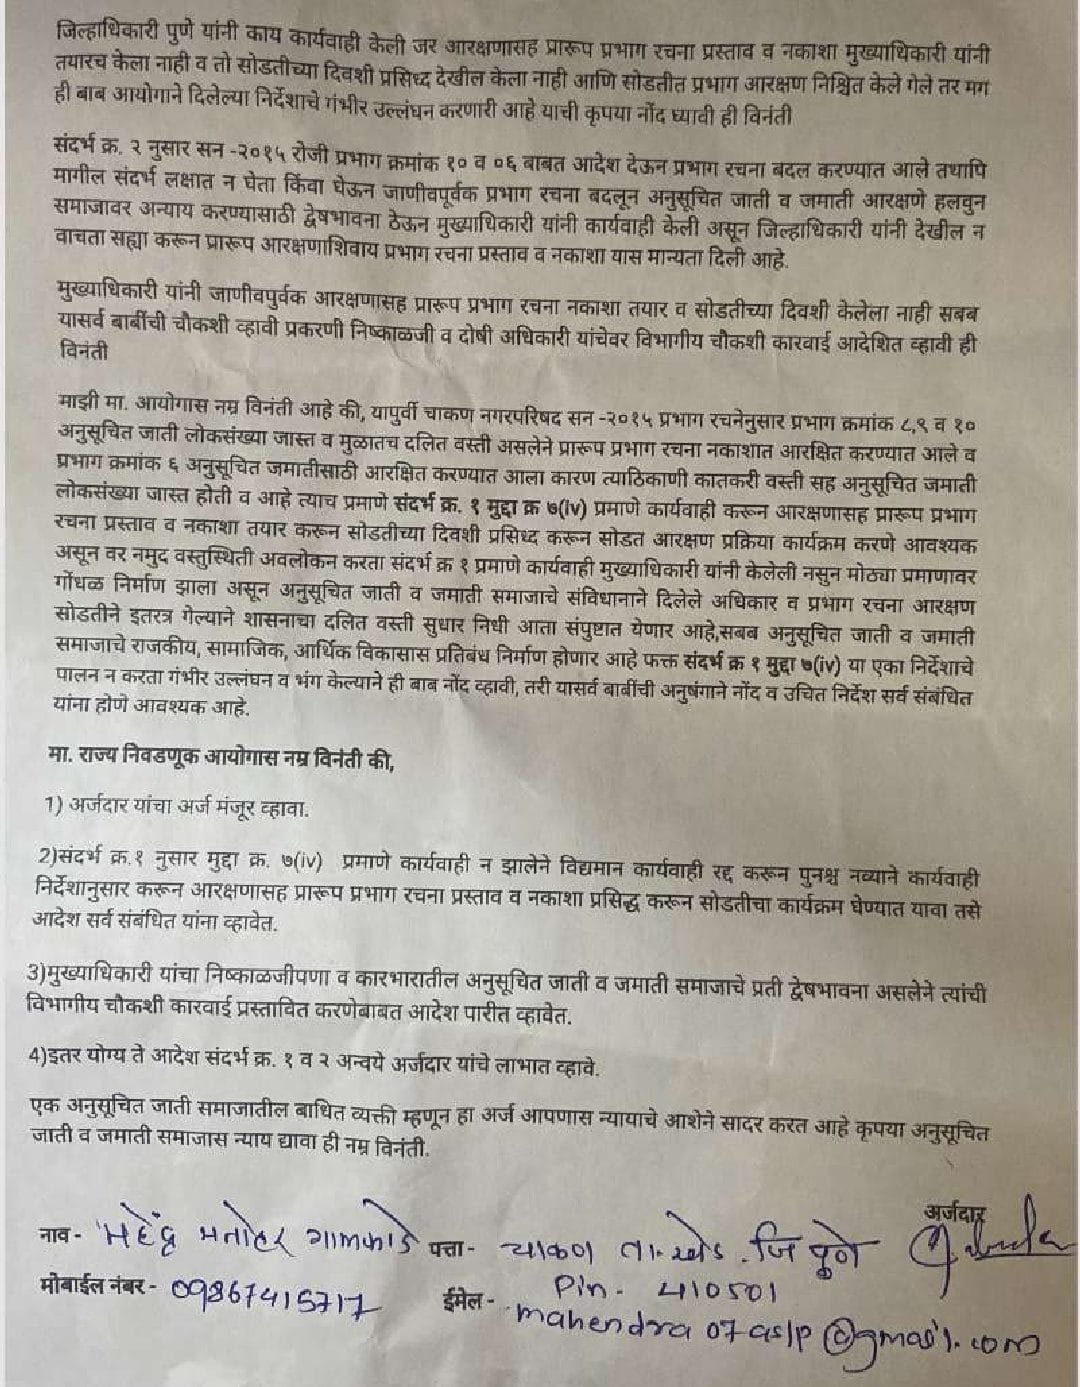 जिल्हाधिकारी पुणे यांनी काय कार्यवाही केली जर आरक्षणासह प्रारूप प्रभाग रचना प्रस्ताव व नकाशा मुख्याधिकारी यांनी
तयारच केला नाही व तो सोडतीच्या दिवशी प्रसिध्द देखील केला नाही आणि सोडतीत प्रभाग आरक्षण निश्चित केले गेले तर मग
ही बाब आयोगाने दिलेल्या निर्देशाचे गंभीर उल्लंघन करणारी आहे याची कृपया नोंद घ्यावी ही विनंती
संदर्भ क्र. २ नुसार सन -२०१५ रोजी प्रभाग क्रमांक १० व ०६ बाबत आदेश देऊन प्रभाग रचना बदल करण्यात आले तथापि
मागील संदर्भ लक्षात न घेता किंवा घेऊन जाणीवपूर्वक प्रभाग रचना बदलून अनुसूचित जाती व जमाती आरक्षणे हलवुन
समाजावर अन्याय करण्यासाठी द्वेषभावना ठेऊन मुख्याधिकारी यांनी कार्यवाही केली असून जिल्हाधिकारी यांनी देखील न
वाचता सह्या करून प्रारूप आरक्षणाशिवाय प्रभाग रचना प्रस्ताव व नकाशा यास मान्यता दिली आहे.
मुख्याधिकारी यांनी जाणीवपुर्वक आरक्षणासह प्रारूप प्रभाग रचना नकाशा तयार व सोडतीच्या दिवशी केलेला नाही सबब
यासर्व बाबींची चौकशी व्हावी प्रकरणी निष्काळजी व दोषी अधिकारी यांचेवर विभागीय चौकशी कारवाई आदेशित व्हावी ही
विनंती
माझी मा. आयोगास नम्र विनंती आहे की, यापुर्वी चाकण नगरपरिषद सन -२०१५ प्रभाग रचनेनुसार प्रभाग क्रमांक ८,९ व १०
अनुसूचित जाती लोकसंख्या जास्त व मुळातच दलित वस्ती असलेने प्रारूप प्रभाग रचना नकाशात आरक्षित करण्यात आले व
प्रभाग क्रमांक ६ अनुसूचित जमातीसाठी आरक्षित करण्यात आला कारण त्याठिकाणी कातकरी वस्ती सह अनुसूचित जमाती
लोकसंख्या जास्त होती व आहे त्याच प्रमाणे संदर्भ क्र. १ मुद्दा क्र ७(iv) प्रमाणे कार्यवाही करून आरक्षणासह प्रारूप प्रभाग
रचना प्रस्ताव व नकाशा तयार करून सोडतीच्या दिवशी प्रसिध्द करून सोडत आरक्षण प्रक्रिया कार्यक्रम करणे आवश्यक
असून वर नमुद वस्तुस्थिती अवलोकन करता संदर्भ क्र १ प्रमाणे कार्यवाही मुख्याधिकारी यांनी केलेली नसुन मोठ्या प्रमाणावर
गोंधळ निर्माण झाला असून अनुसूचित जाती व जमाती समाजाचे संविधानाने दिलेले अधिकार व प्रभाग रचना आरक्षण
सोडतीने इतरत्र गेल्याने शासनाचा दलित वस्ती सुधार निधी आता संपुष्टात येणार आहे,सबब अनुसूचित जाती व जमाती
समाजाचे राजकीय, सामाजिक, आर्थिक विकासास प्रतिबंध निर्माण होणार आहे फक्त संदर्भ क्र १ मुद्दा ७(iv) या एका निर्देशाचे
पालन न करता गंभीर उल्लंघन व भंग केल्याने ही बाब नोंद व्हावी, तरी यासर्व बाबींची अनुषंगाने नोंद व उचित निर्देश सर्व संबंधित
यांना होणे आवश्यक आहे.
मा. राज्य निवडणूक आयोगास नम्र विनंती की,
1) अर्जदार यांचा अर्ज मंजूर व्हावा.
2)संदर्भ क्र.१ नुसार मुद्दा क्र. ७(iv) प्रमाणे कार्यवाही न झालेने विद्यमान कार्यवाही रद्द करून पुनश्च नव्याने कार्यवाही
निर्देशानुसार करून आरक्षणासह प्रारूप प्रभाग रचना प्रस्ताव व नकाशा प्रसिद्ध करून सोडतीचा कार्यक्रम घेण्यात यावा तसे
आदेश सर्व संबंधित यांना व्हावेत.
3)मुख्याधिकारी यांचा निष्काळजीपणा व कारभारातील अनुसूचित जाती व जमाती समाजाचे प्रती द्वेषभावना असलेने त्यांची
विभागीय चौकशी कारवाई प्रस्तावित करणेबाबत आदेश पारीत व्हावेत.
4)इतर योग्य ते आदेश संदर्भ क्र. १ व २ अन्वये अर्जदार यांचे लाभात व्हावे.
एक अनुसूचित जाती समाजातील बाधित व्यक्ती म्हणून हा अर्ज आपणास न्यायाचे आशेने सादर करत आहे कृपया अनुसूचित
जाती व जमाती समाजास न्याय द्यावा ही नम्र विनंती.
अर्जदार
नाव - महेंद्र मनोहर पत्ता - चाकण ता. खेड. जि पुणे
Pin. 410501
मोबाईल नंबर - 09867415717 ईमेल - mahendra07aslp@gmail.com